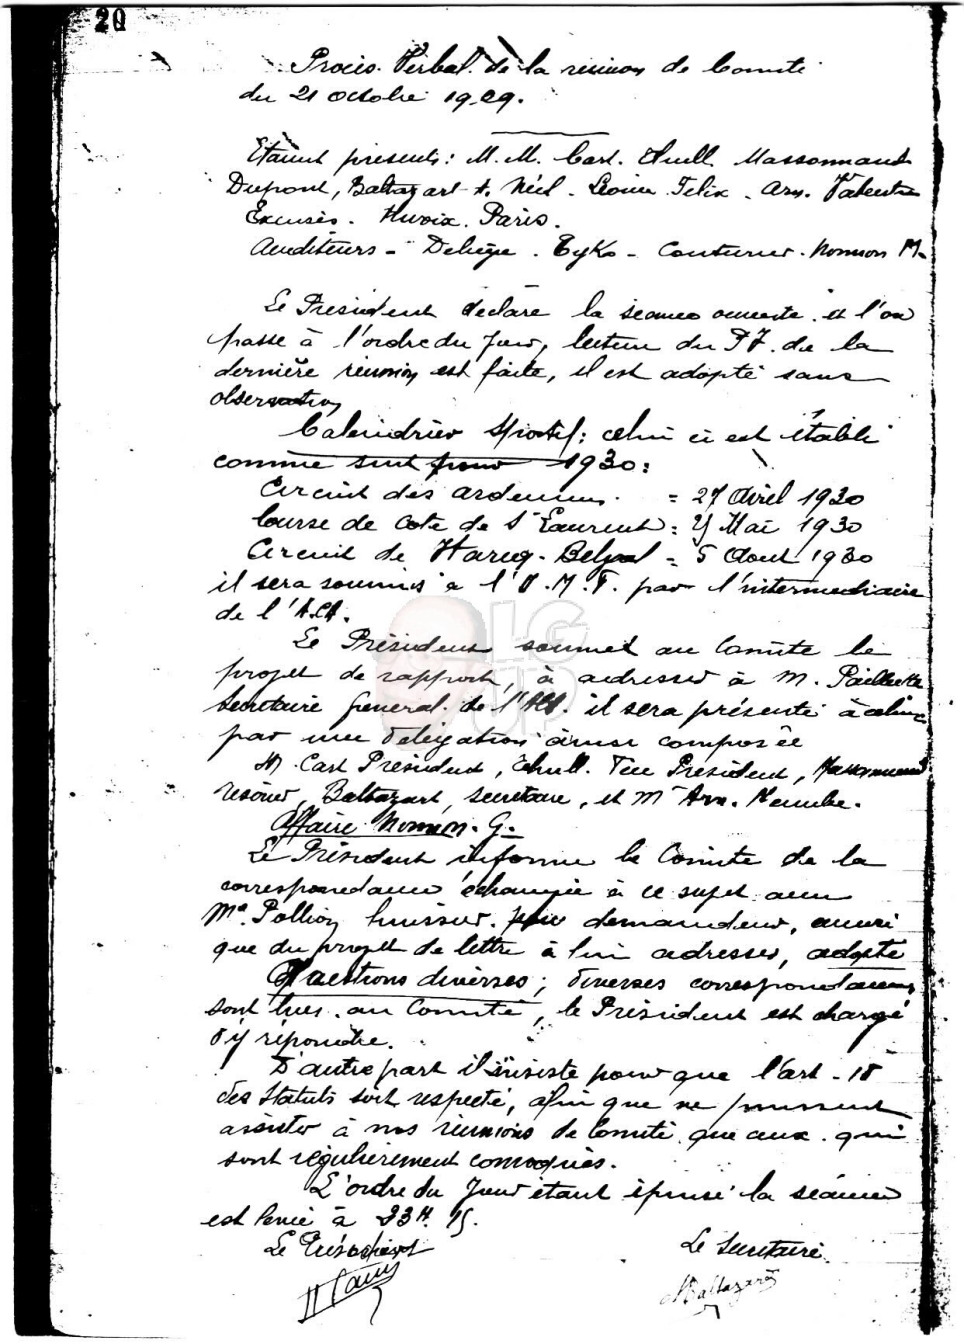 20
Procès Verbal de la réunion de Comité
du 21 octobre 1929.
Etaient présents: M.M. Carl. Thull Massonnaud
Dupont, Baltazart A. Neil. Félix. Arn. Valentin
Excusés. Huvoix. Paris.
Auditeurs - Deliège. Eyko - Couturier. Nomson M.
Le Président déclare la séance ouverte et l'on
passe à l'ordre du Jour, lecture du P.V. de la
dernière réunion est faite, il est adopté sans
observation
Calendrier Sportif; celui ci est établi
comme suit pour 1930:
Circuit des ardennes. = 27 Avril 1930
Course de cote de St Laurent = Mai 1930
Circuit de Warcq-Belval = 5 Aout 1930
il sera soumis à l'U.M.F. par l'intermediaire
de l'A.CA.
LG UP
Le Président soumet au Comité le
projet de rapport, à adresser à M. Paillette
Secrétaire Général de l'ACA. il sera présenté à celui-ci
par une délégation ainsi composée
M. Carl Président, Thull. Vice Président, Massonnaud
Trésorier, Baltazart, secrétaire, et Mr Arn.
Affaire Nomson. G.
Le Président informe le Comité de la
correspondance échangée à ce sujet avec
Me. Pollion huissier. pour demandeur, ainsi
que du projet de lettre à lui adresser, adopté
Questions diverses; diverses correspondances
sont lues au Comité, le Président est chargé
d'y répondre.
D'autre part il insiste pour que l'art - 18
des Statuts soit respecté, afin que ne puissent
assister à nos réunions de Comité que ceux qui
sont régulièrement convoqués.
L'ordre du Jour étant épuisé la séance
est levée à 23H. 15.
Le Président Le Secrétaire
Baltazart